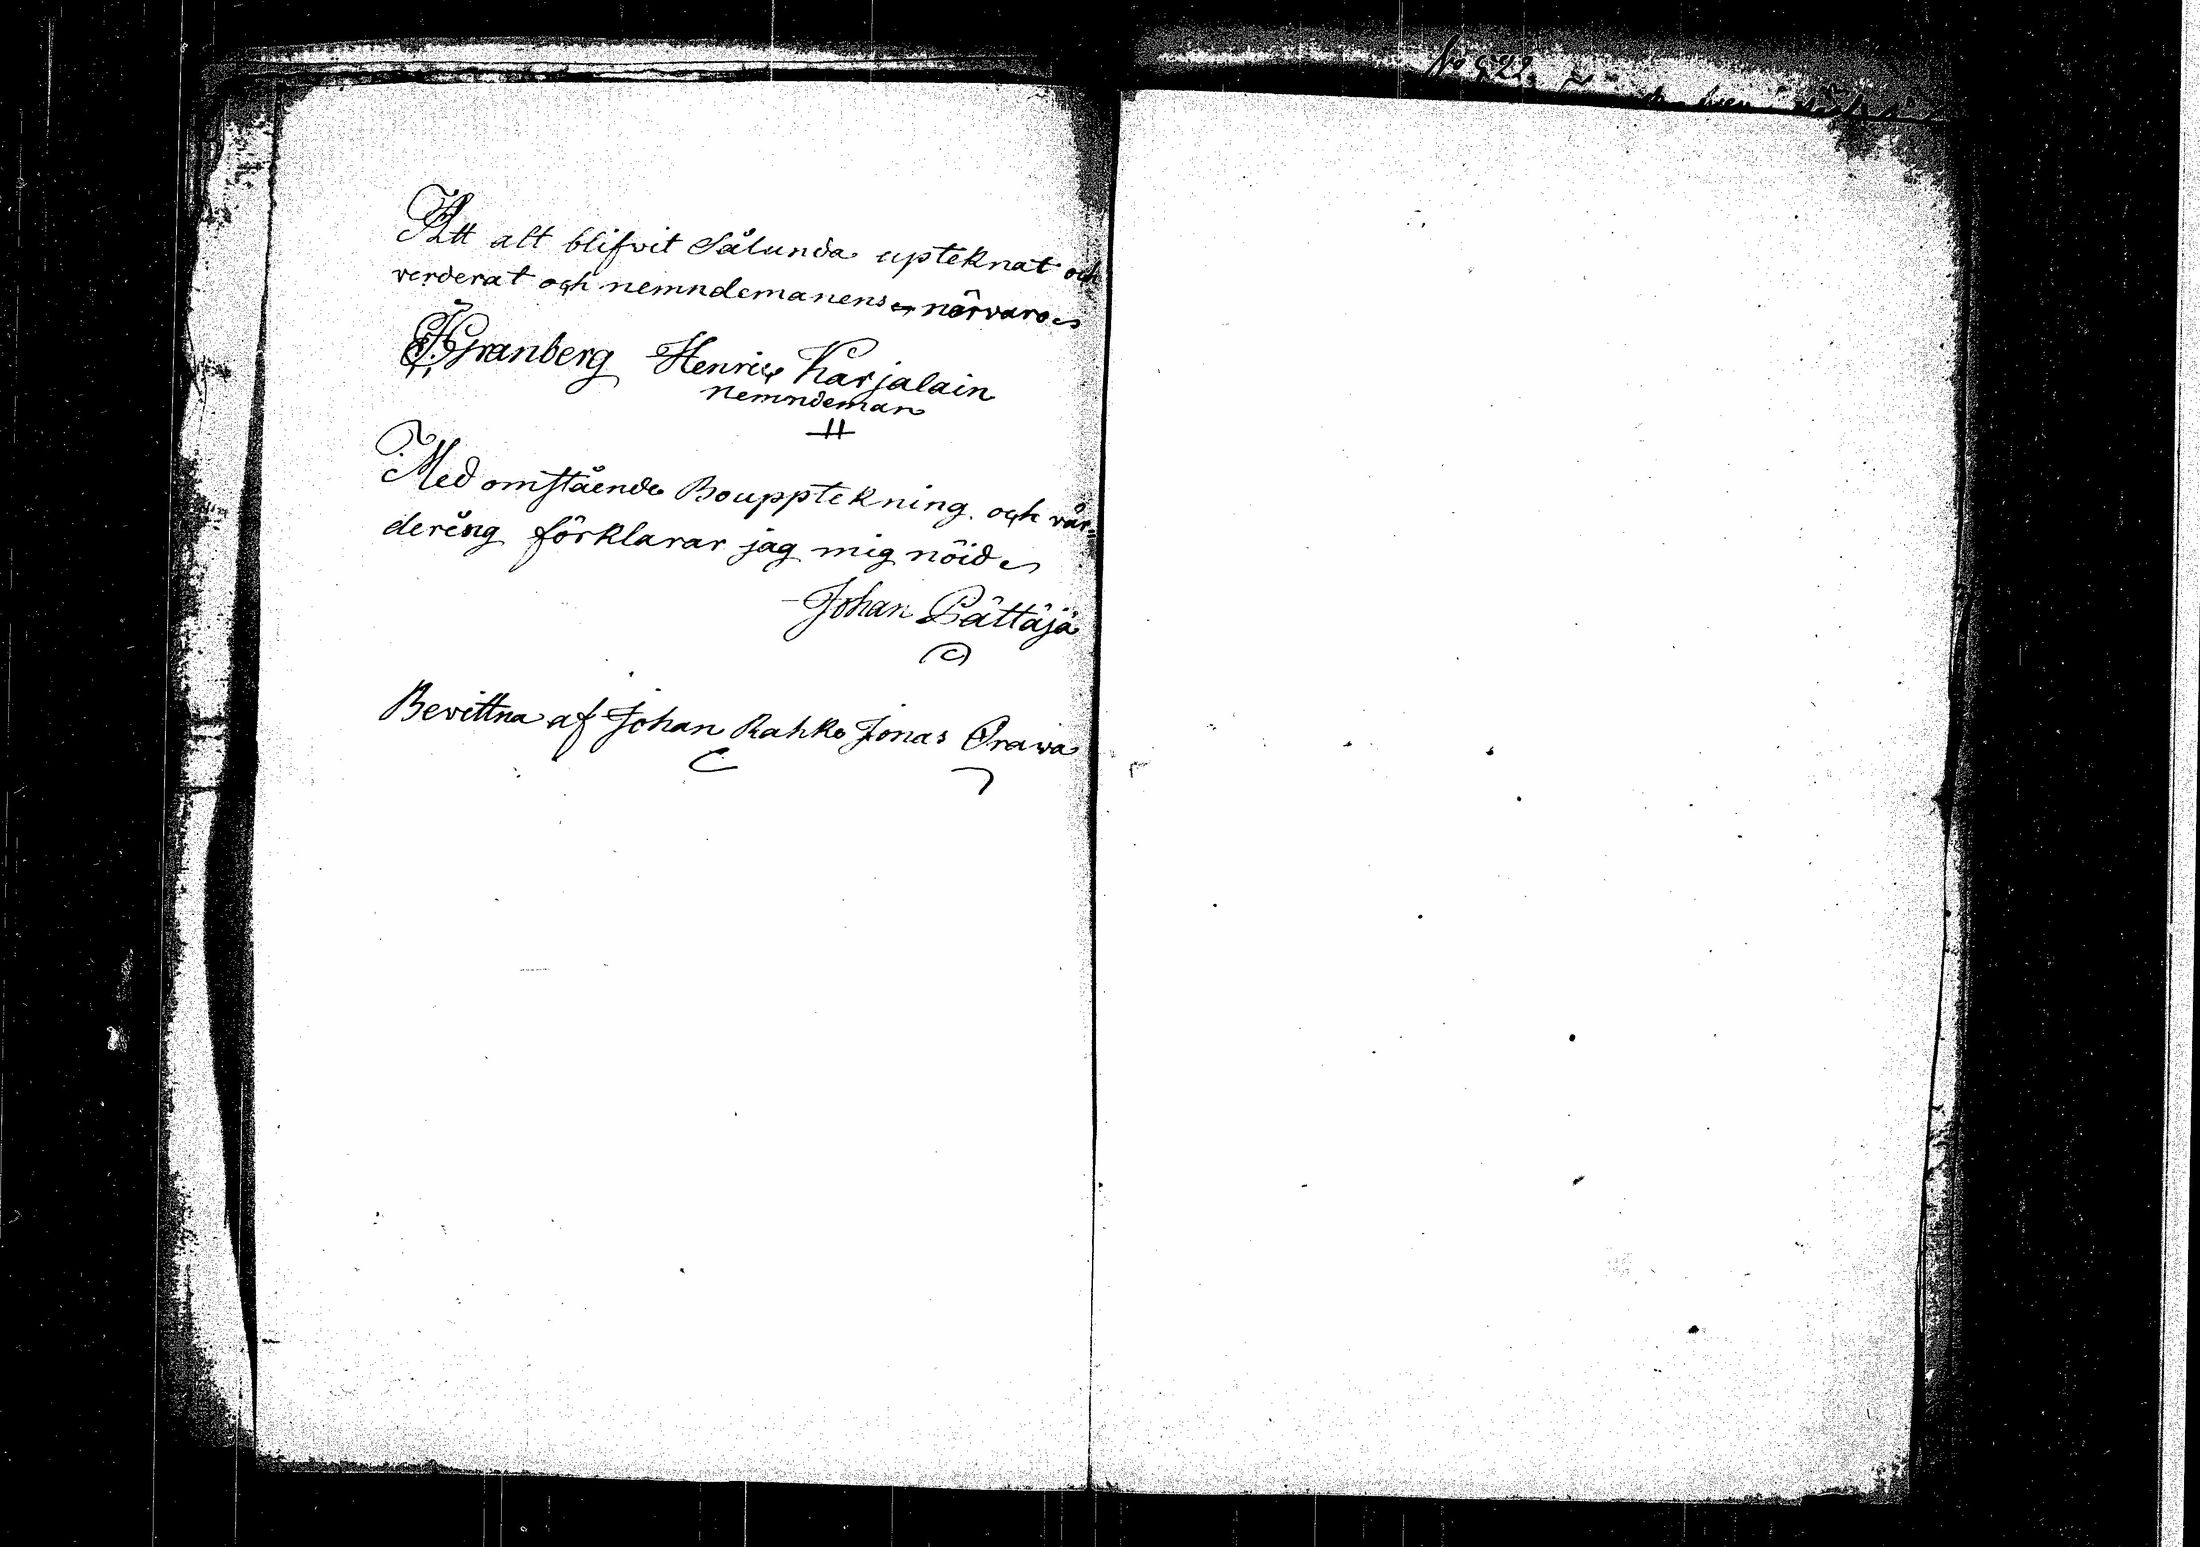 Att alt blifvit Sålunda upteknat och
verderat och nemndemanens närvaro
Granberg Henric Karjalain
nemndeman
Med omstående Boupptekning och vär=
dering förklarar jag mig nöid
Johan Pättäjä
Bevittna af Johan Rahko Jonas Orawa
No 522